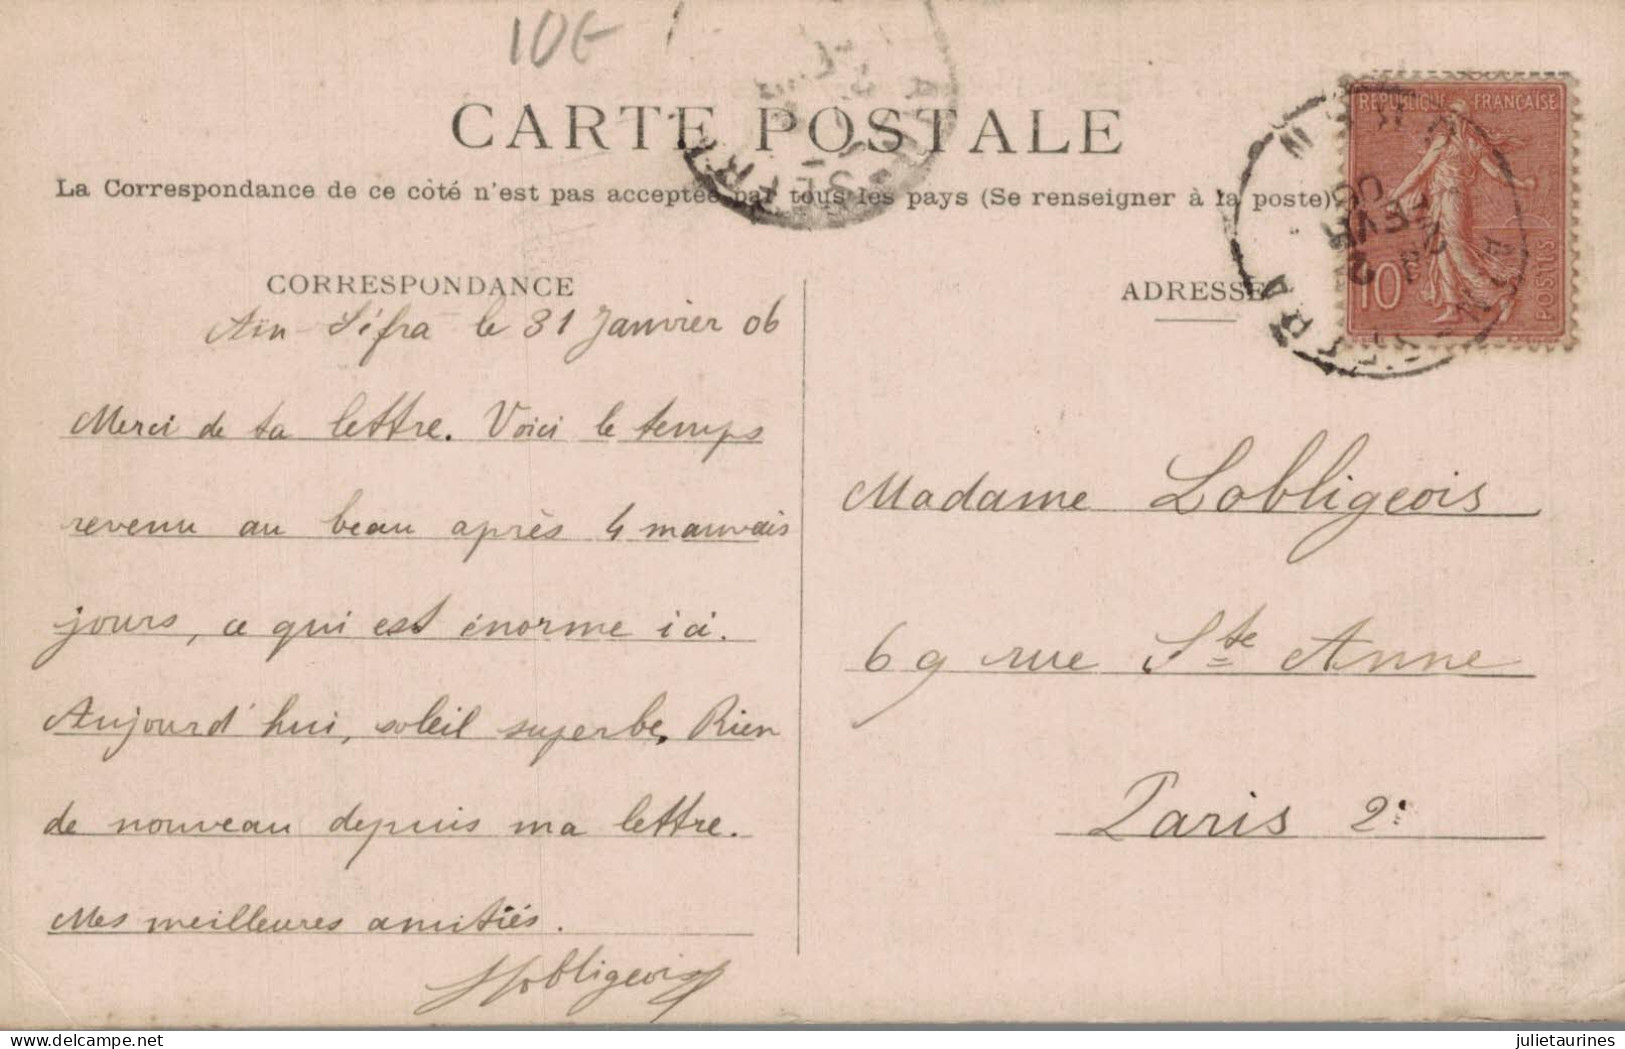 10€
CARTE POSTALE
La Correspondance de ce côté n'est pas acceptée par tous les pays (Se renseigner à la poste)
RÉPUBLIQUE FRANÇAISE
10
POSTES
CORRESPONDANCE
ADRESSE
Aïn-Séfra le 31 Janvier 06
Merci de ta lettre. Voici le temps
revenu au beau après 4 mauvais
jours, ce qui est énorme ici.
Aujourd'hui, soleil superbe. Rien
de nouveau depuis ma lettre.
Mes meilleures amitiés.
Lobligeois
Madame Lobligeois
69 rue Ste Anne
Paris 2e
julietaurines